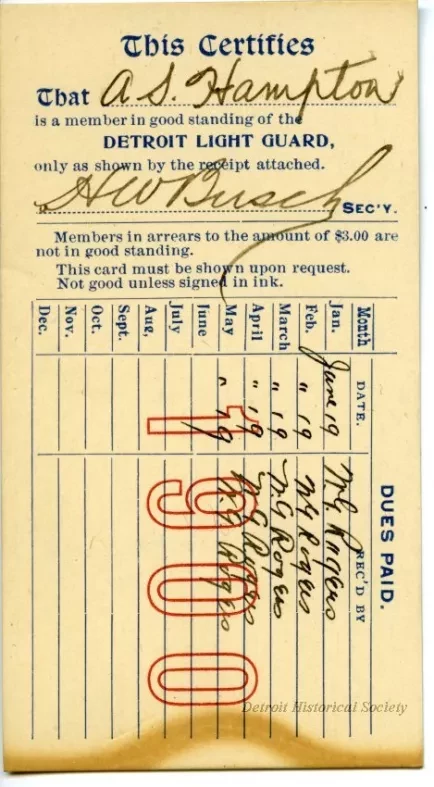 This Certifies
That A. S. Hampton
is a member in good standing of the
DETROIT LIGHT GUARD,
only as shown by the receipt attached.
H W Busch SEC'Y.
Members in arrears to the amount of $3.00 are
not in good standing.
This card must be shown upon request.
Not good unless signed in ink.
DUES PAID.
Month DATE. REC'D BY
Jan. June 19 N. G. Rogers
Feb. " 19 N G Rogers
March " 19 N. G Rogers
April " 19 N G Rogers
May " 19 N. G Rogers
June
July
Aug.
Sept.
Oct.
Nov.
Dec.
1900
Detroit Historical Society